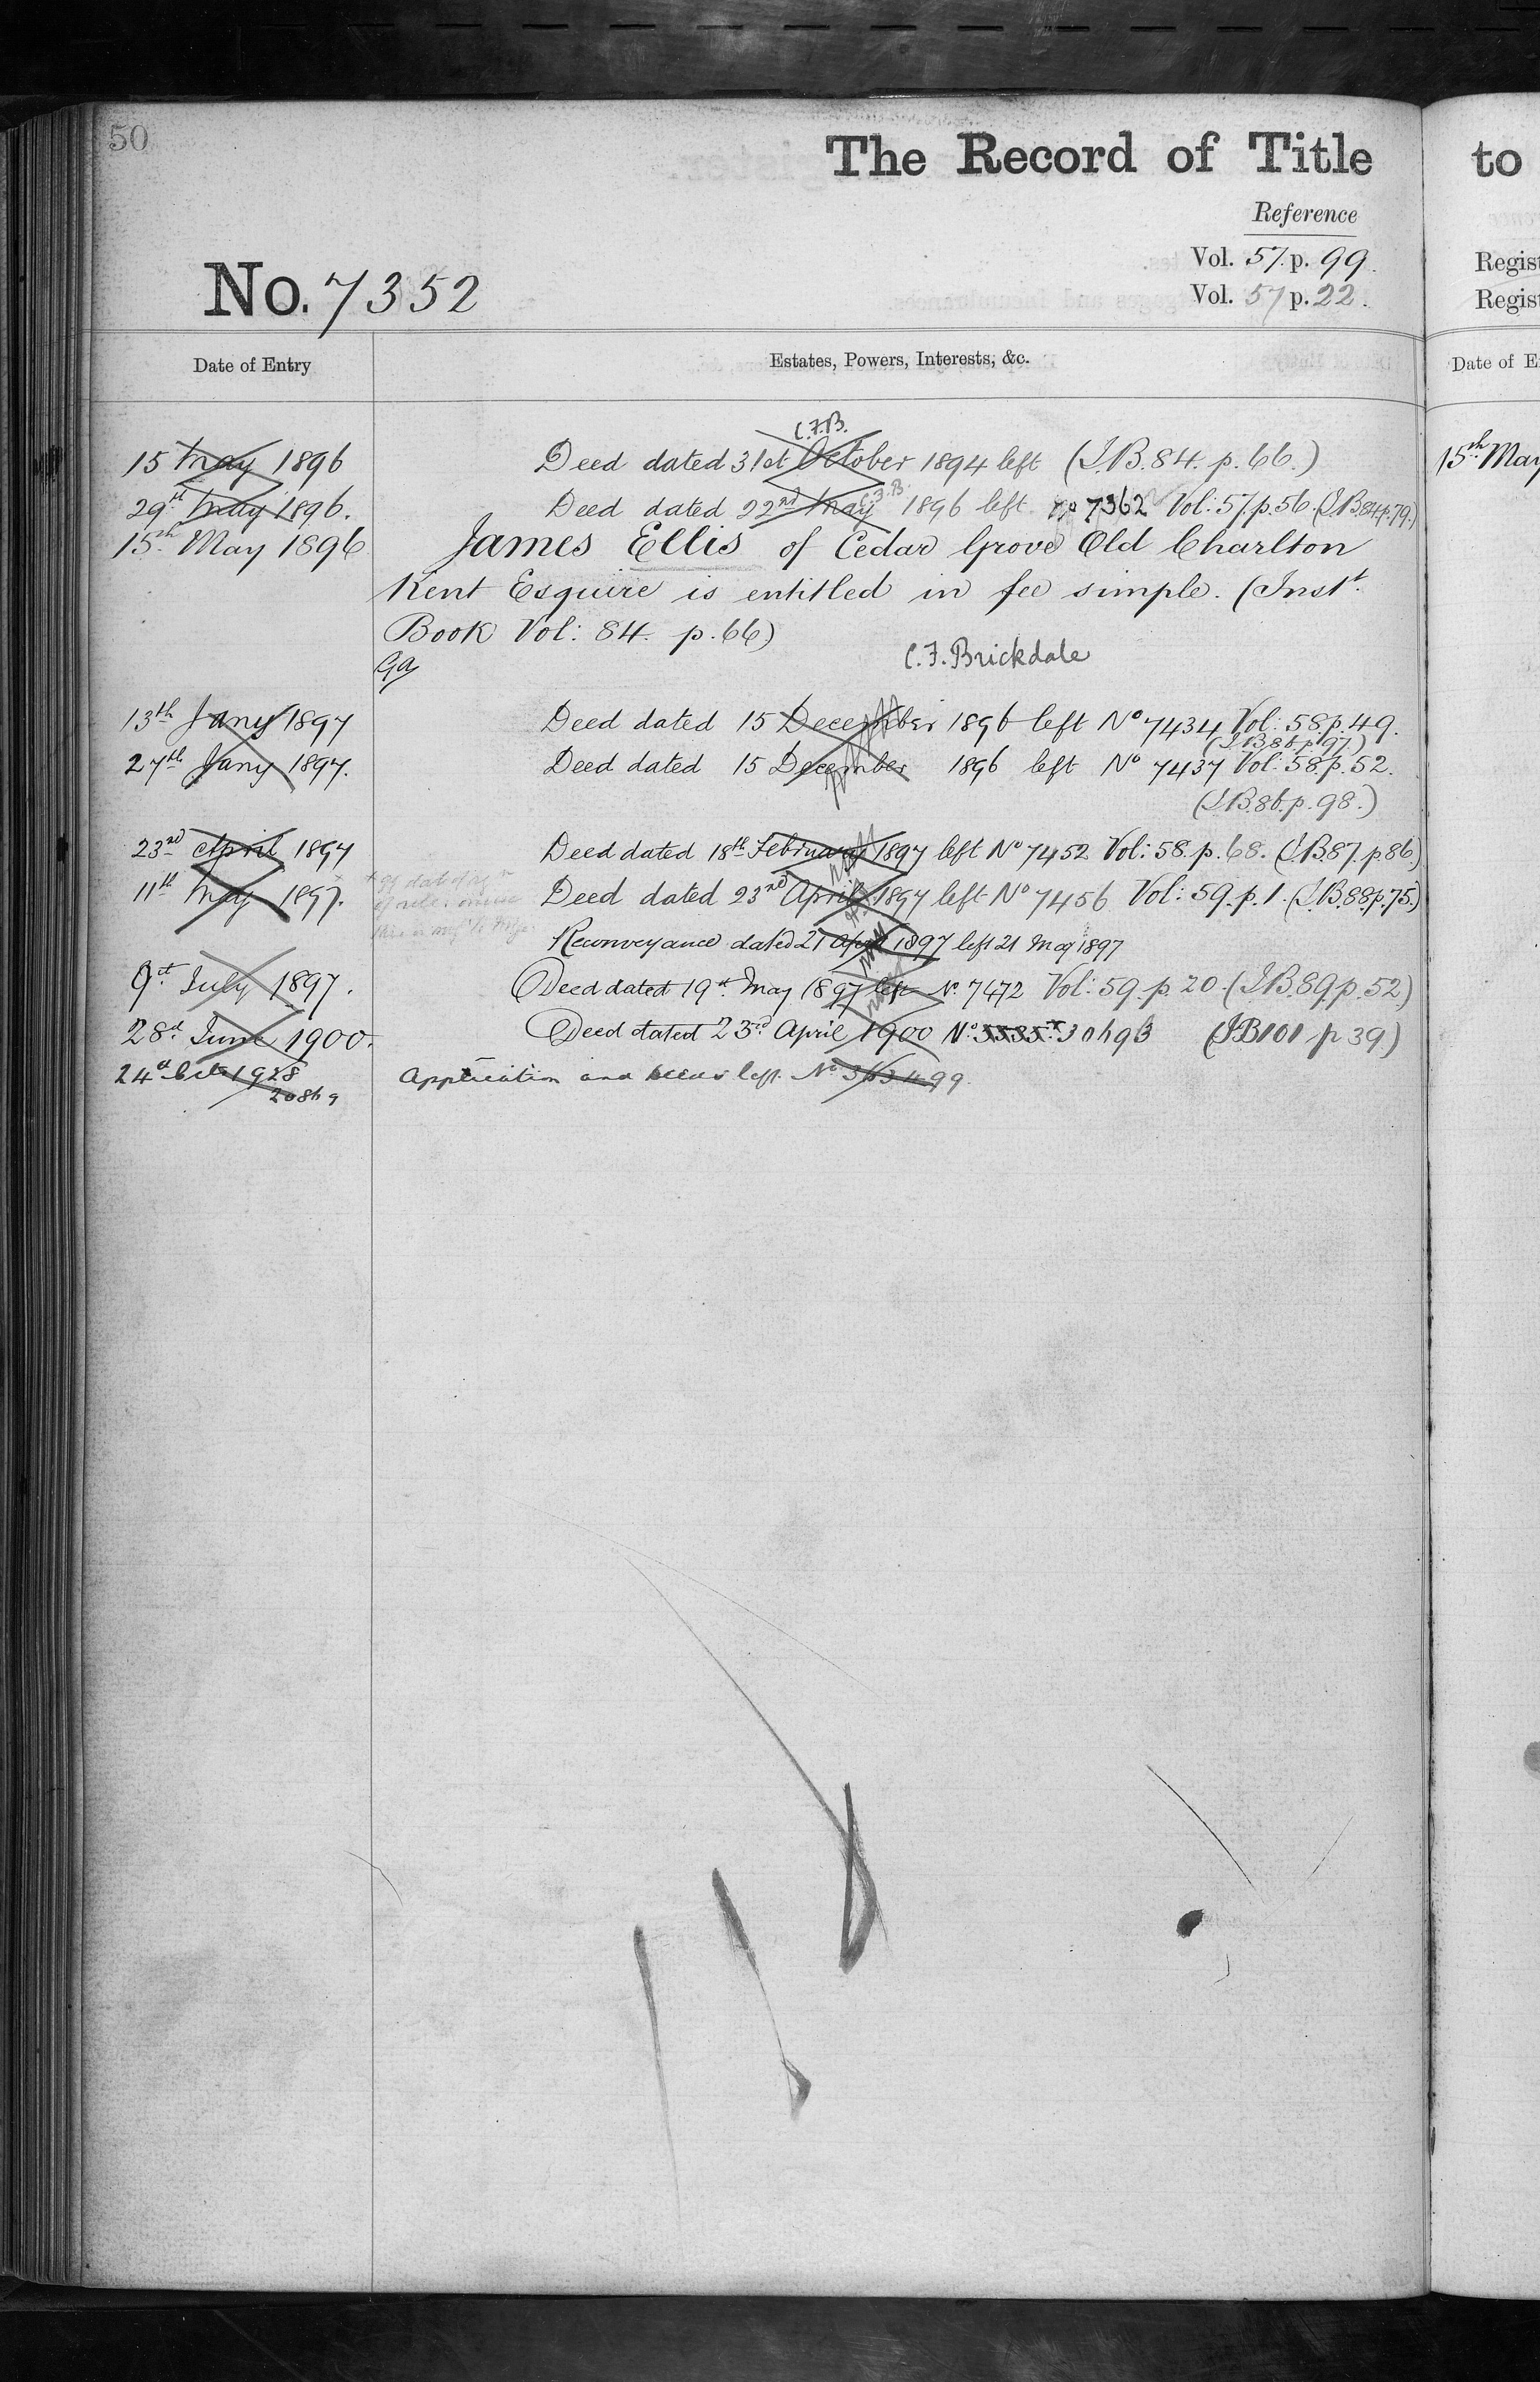 50
The Record of Title
to
Reference
Vol. 57. p. 99.
Vol. 57 p. 22.
Regist
Regist
No. 7352
Date of Entry
Estates, Powers, Interests, &c.
Date of E
C.F.B.
15 May 1896 Deed dated 31st October 1894 left (I.B. 84. p. 66.)
15th May
29th May 1896. Deed dated 22nd May C.F.B. 1896 left No 7362 Vol: 57. p. 56. (I.B. 84 p. 79.)
15th May 1896 James Ellis of Cedar Grove Old Charlton
Kent Esquire is entitled in fee simple. (Inst.
Book Vol: 84. p. 66)
C.F. Brickdale
13th Jany 1897 Deed dated 15 December 1896 left No 7434 Vol: 58 p. 49.
(I.B. 86. p. 97.)
27th Jany 1897. Deed dated 15 December 1896 left No 7437 Vol: 58. p. 52.
(I.B. 86. p. 98.)
23rd April 1897 Deed dated 18th February 1897 left No 7452 Vol: 58. p. 68. (I.B. 87. p. 86.)
11th May 1897. Deed dated 23rd April 1897 left No 7456 Vol: 59. p. 1. (I.B. 88 p. 75.)
Reconveyance dated 21 April 1897 left 21 May 1897
9th July 1897. Deed dated 19th May 1897 left No. 7472 Vol: 59. p. 20. (I.B. 89. p. 52)
28th June 1900. Deed dated 23rd April 1900 No. (I B 101 p 39)
24th 1928 Application and left. No 363499